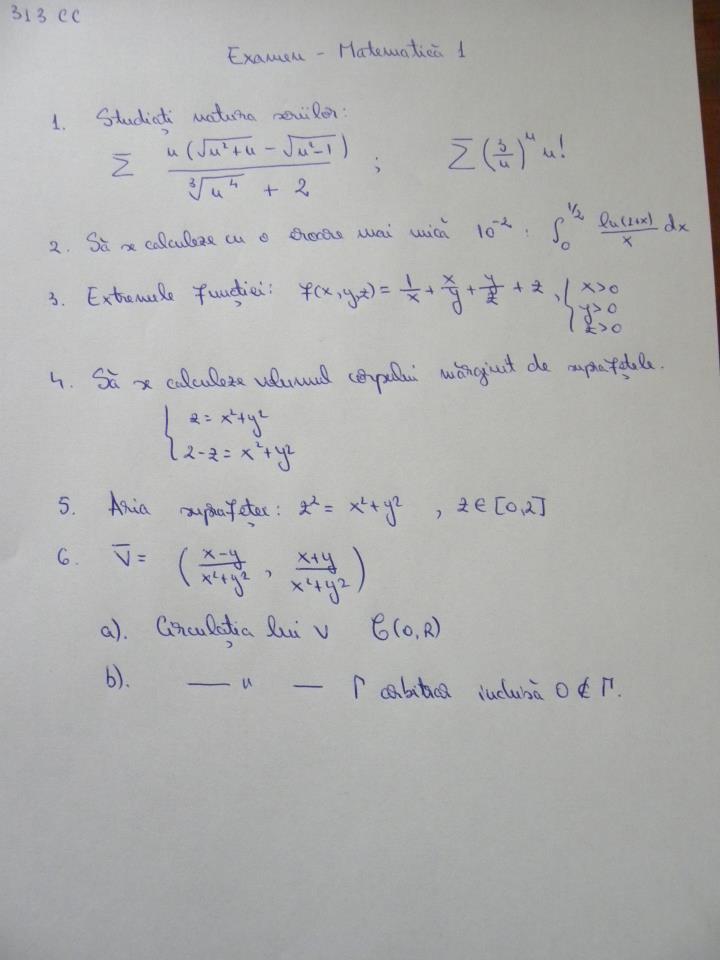 313 CC
Examen - Matematică 1
1. Studiați natura seriilor:
Σ n(√(n²+n) - √(n²-1)) / (∛(n⁴) + 2) ; Σ (3/n)ⁿ n!
2. Să se calculeze cu o eroare mai mică 10⁻² : ∫₀^(1/2) ln(1+x)/x dx
3. Extremele funcției: f(x,y,z) = 1/x + x/y + y/z + z, { x>0
y>0
z>0
4. Să se calculeze volumul corpului mărginit de suprafețele.
{ z = x²+y²
2-z = x²+y²
5. Aria suprafeței: z² = x²+y² , z ∈ [0,2]
6. V̅ = ( (x-y)/(x²+y²) , (x+y)/(x²+y²) )
a). Circulația lui V C(0,R)
b). — " — Γ arbitrar inclusă 0 ∉ Γ.